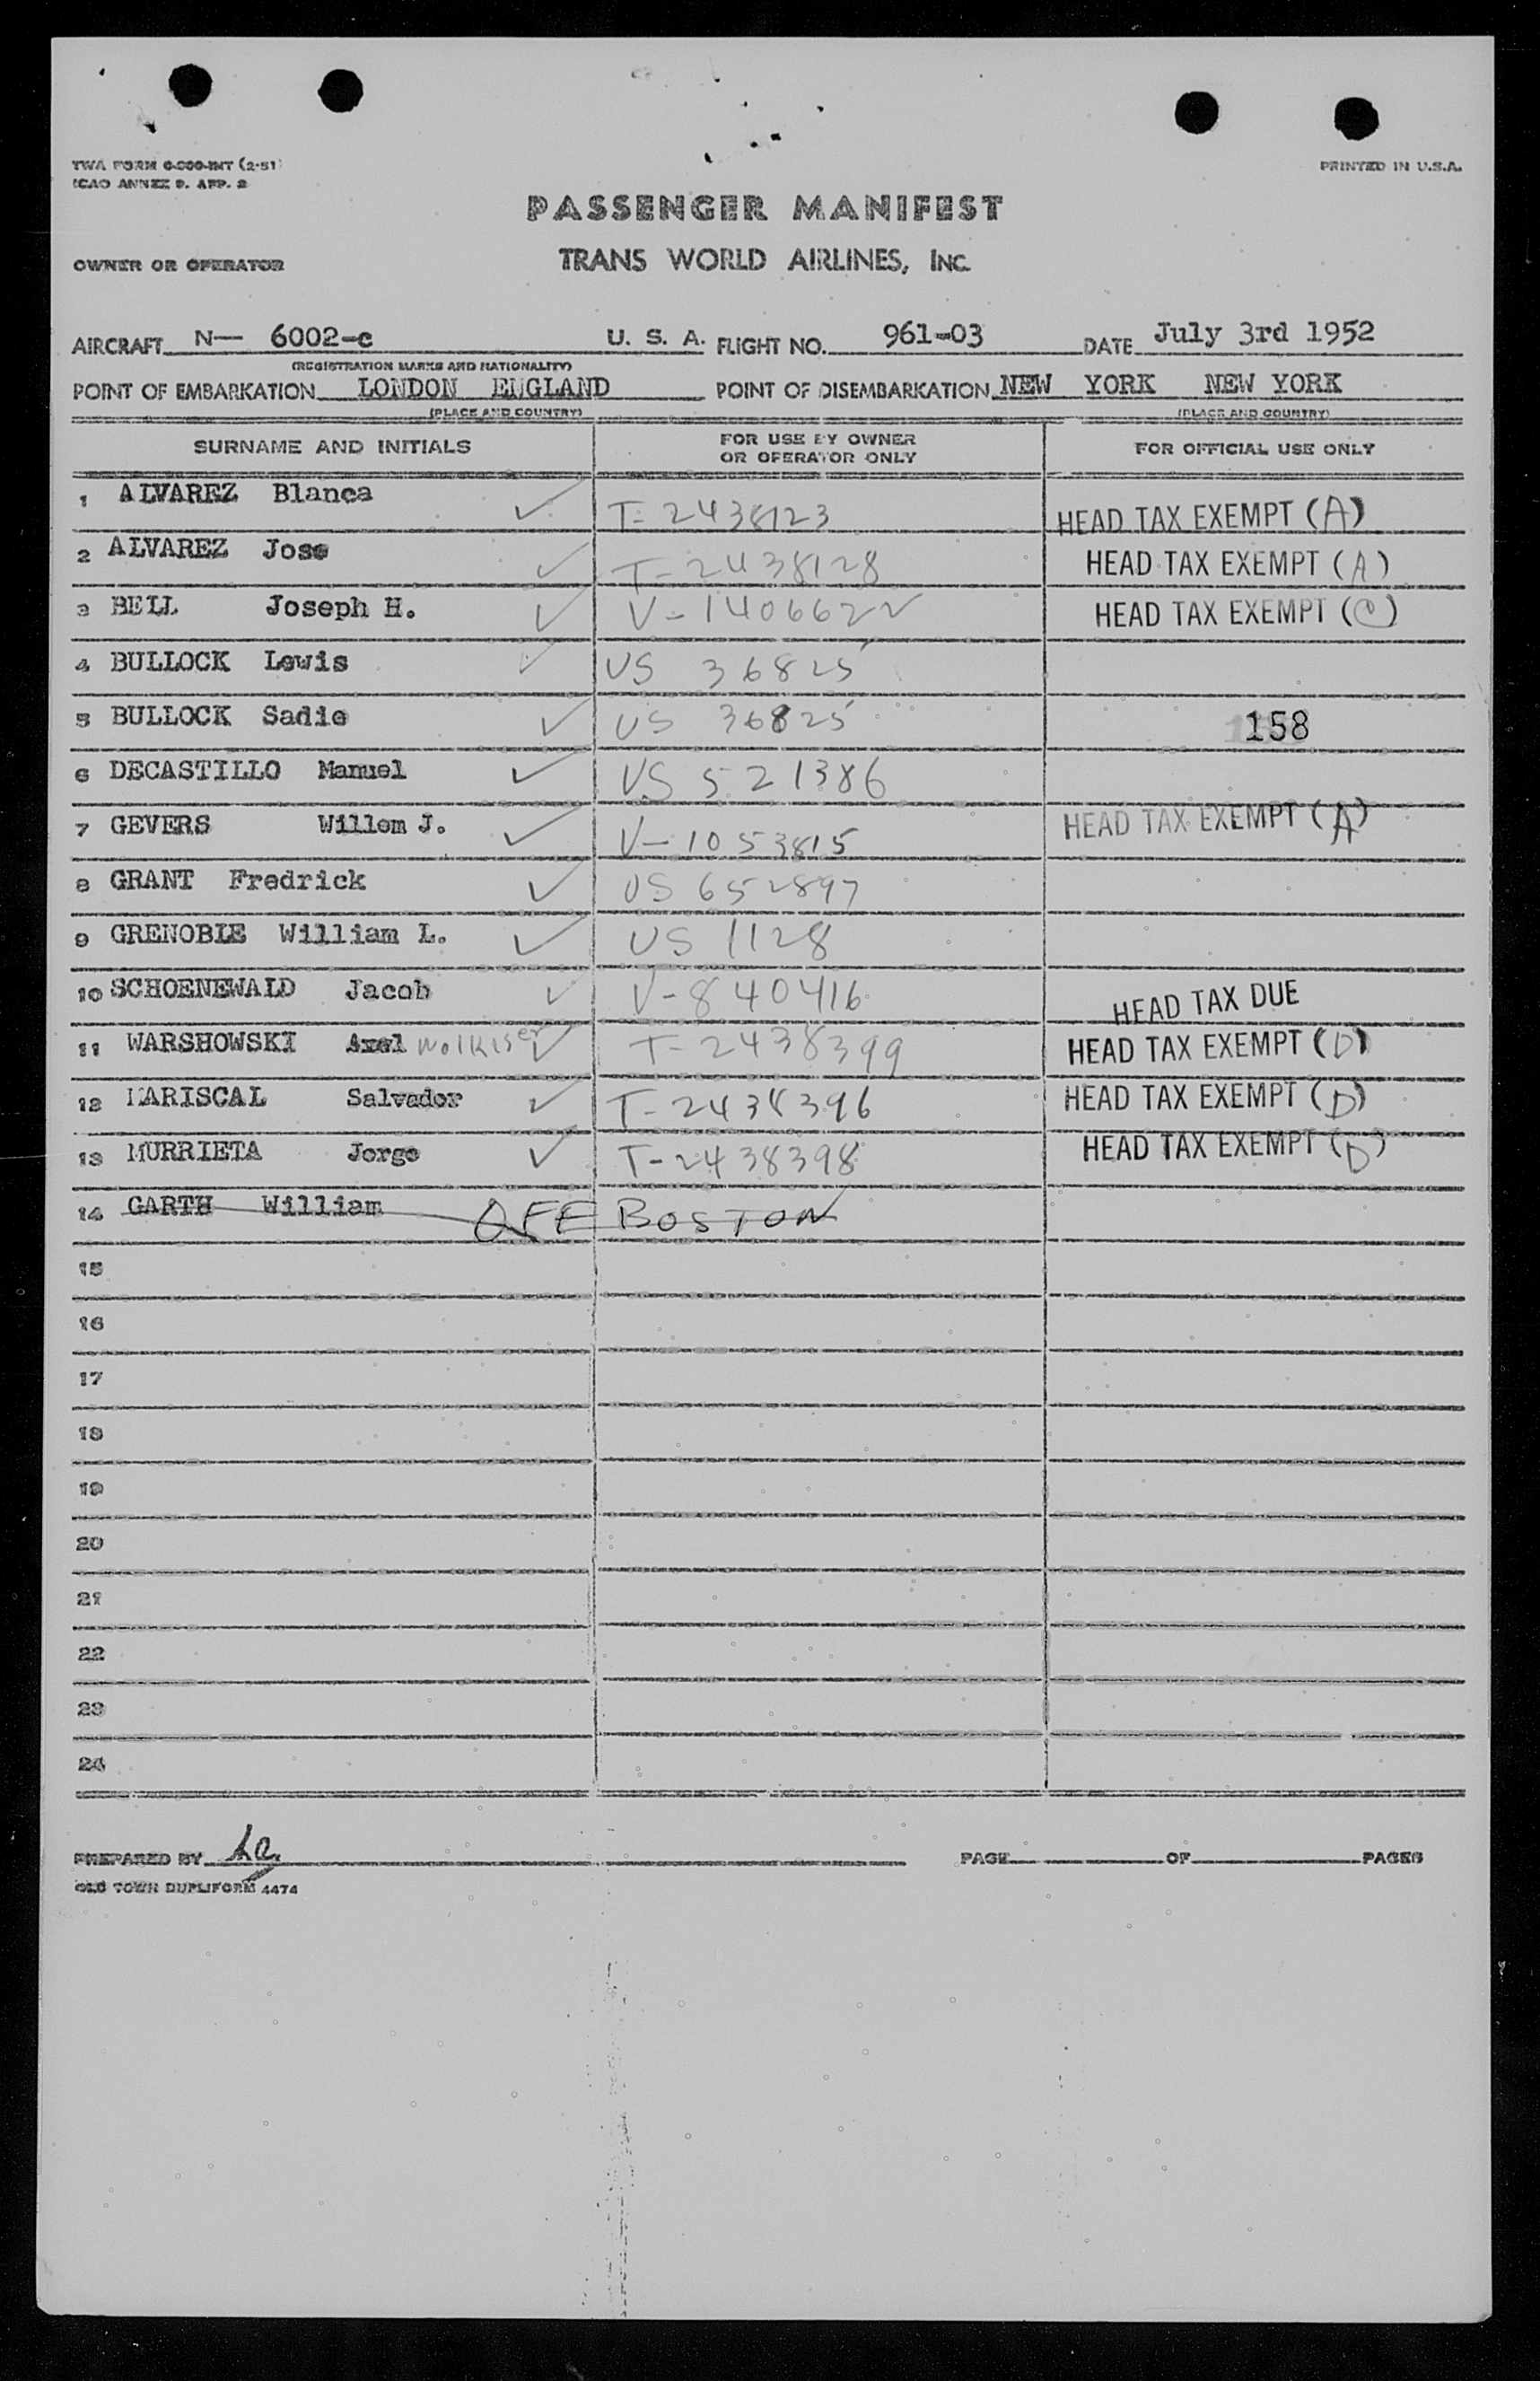 TWA FORM 0-800-INT (2-51)
ICAO ANNEX 9. APP. 2
PRINTED IN U.S.A.
PASSENGER MANIFEST
OWNER OR OPERATOR
TRANS WORLD AIRLINES, INC.
AIRCRAFT N— 6002-c U. S. A. FLIGHT NO. 961-03 DATE July 3rd 1952
(REGISTRATION MARKS AND NATIONALITY)
POINT OF EMBARKATION LONDON ENGLAND POINT OF DISEMBARKATION NEW YORK NEW YORK
(PLACE AND COUNTRY) (PLACE AND COUNTRY)
SURNAME AND INITIALS FOR USE BY OWNER OR OPERATOR ONLY FOR OFFICIAL USE ONLY
1 ALVAREZ Blanca ✓ T-2438123 HEAD TAX EXEMPT (A)
2 ALVAREZ Jose ✓ T-2438128 HEAD TAX EXEMPT (A)
3 BELL Joseph H. ✓ V-1406622 ✓ HEAD TAX EXEMPT (C)
4 BULLOCK Lewis ✓ US 36825
5 BULLOCK Sadie ✓ US 36825 158
6 DECASTILLO Manuel ✓ US 521386
7 GEVERS Willem J. ✓ V-1053815 HEAD TAX EXEMPT (A)
8 GRANT Fredrick ✓ US 652897
9 GRENOBLE William L. ✓ US 1128
10 SCHOENEWALD Jacob ✓ V-840416 HEAD TAX DUE
11 WARSHOWSKI Axel ✓ T-2438399 HEAD TAX EXEMPT (D)
12 MARISCAL Salvador ✓ T-2438396 HEAD TAX EXEMPT (D)
13 MURRIETA Jorge ✓ T-2438398 HEAD TAX EXEMPT (D)
14 GARTH William OFF BOSTON
15
16
17
18
19
20
21
22
23
24
PREPARED BY PAGE OF PAGES
OLD TOWN DUPLIFORM 4474